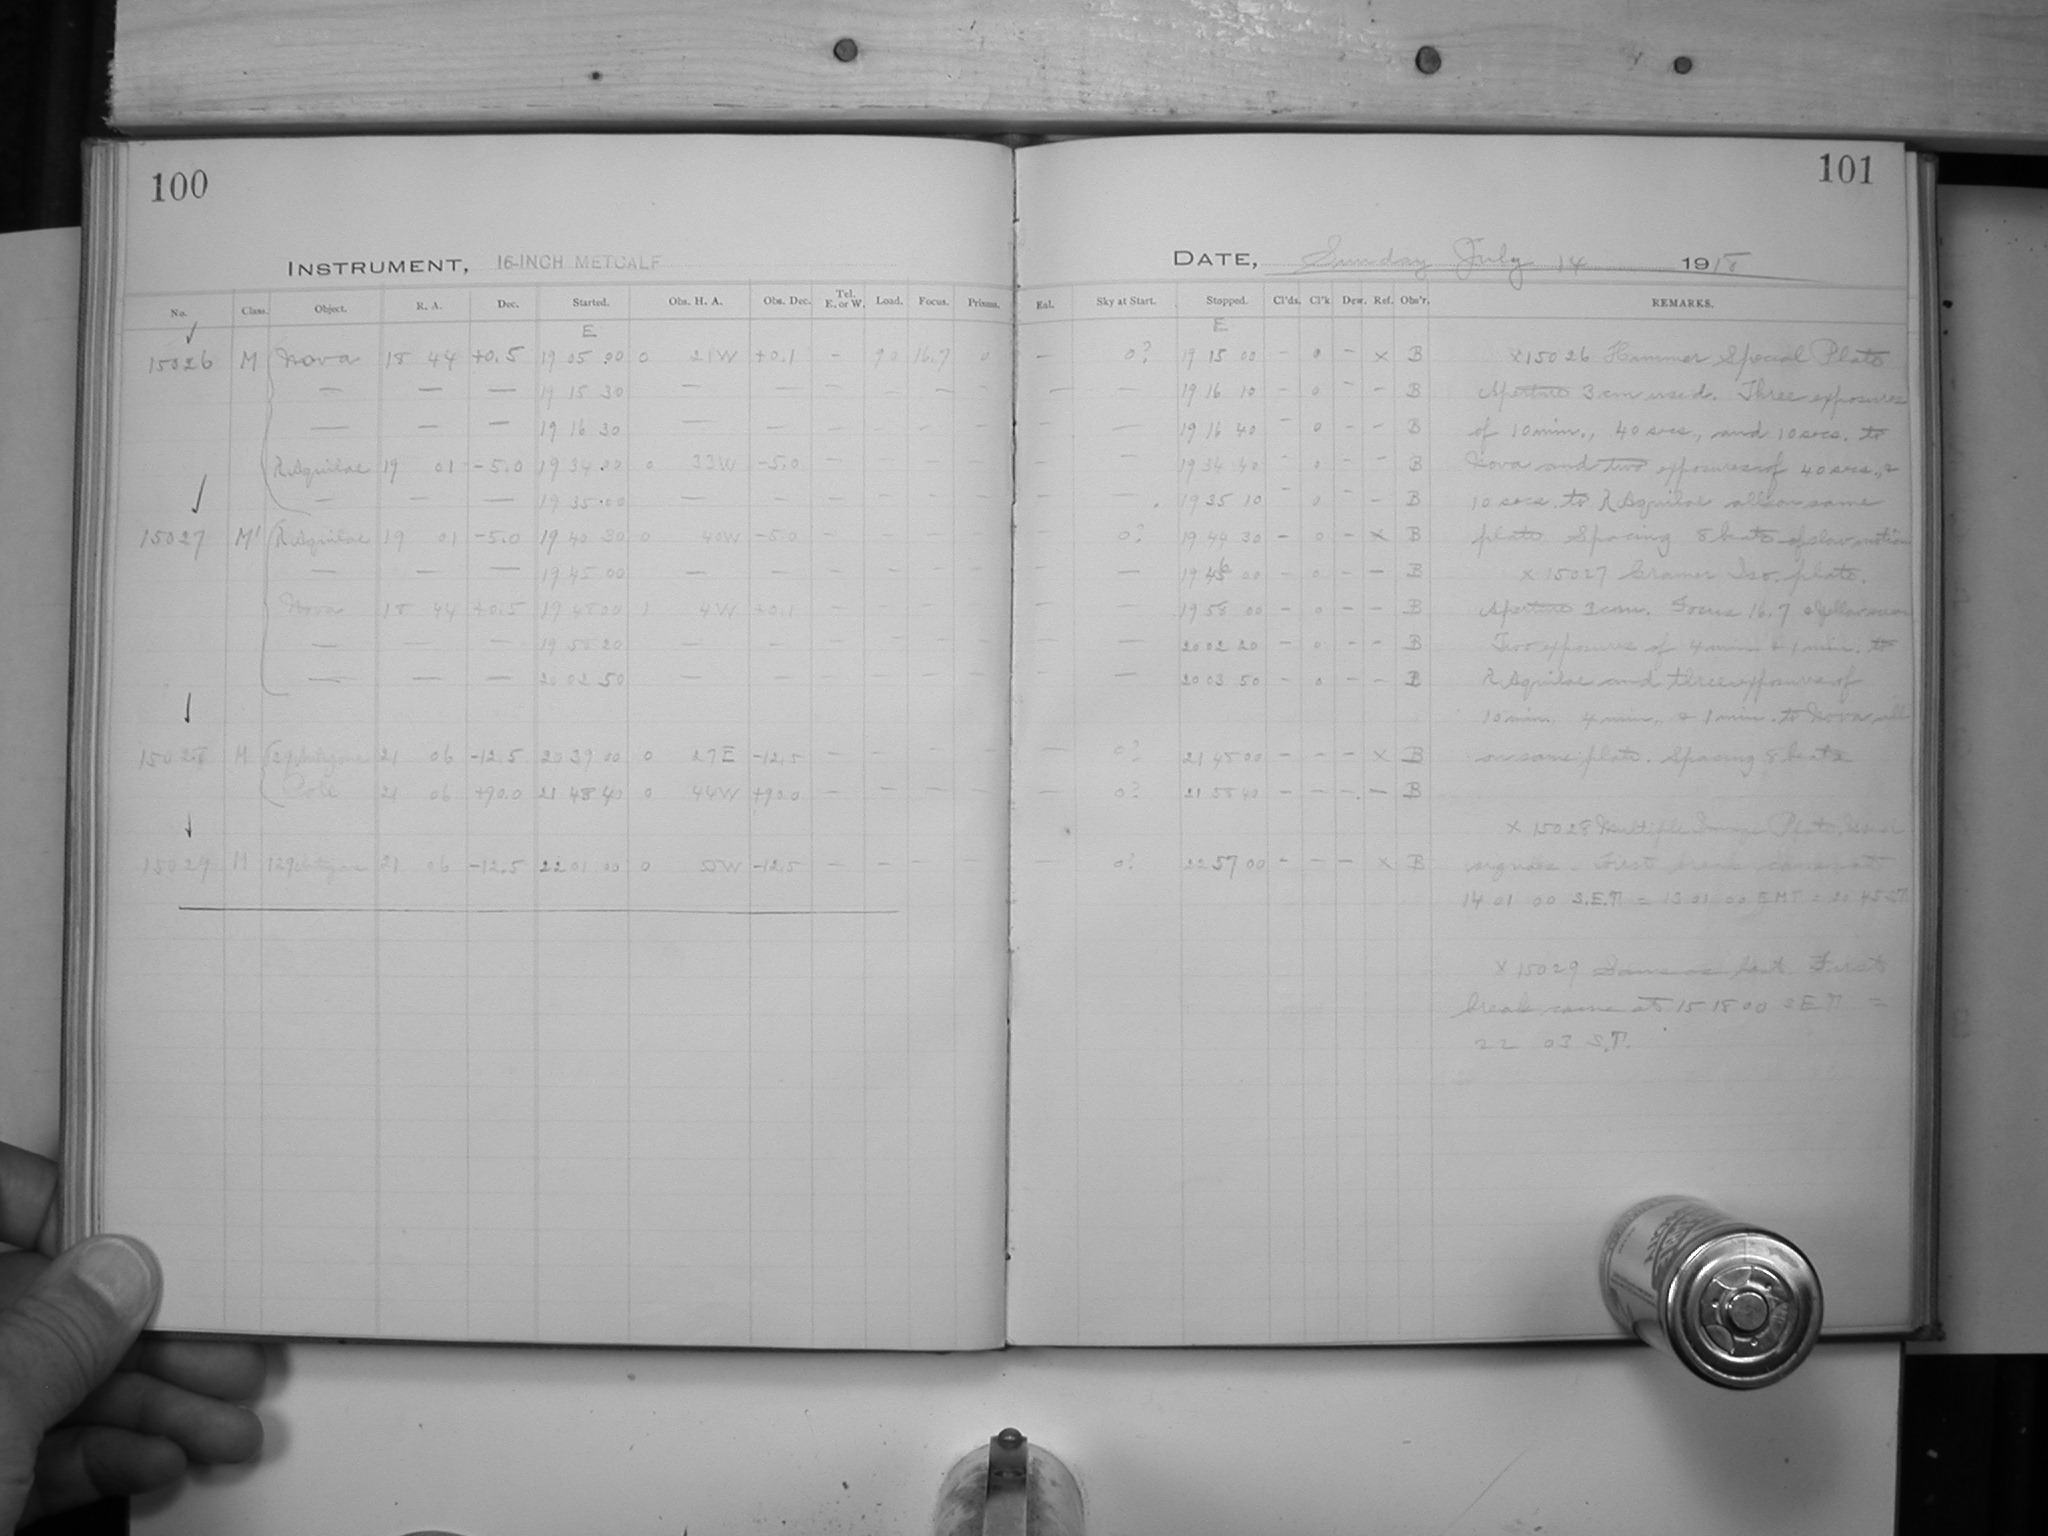 100
101
INSTRUMENT, 16-INCH METCALF
DATE, Sunday July 14 1918
No. Class. Object. R. A. Dec. Started. Obs. H. A. Obs. Dec. Tel. E. or W. Load. Focus. Prisms.
Eal. Sky at Start. Stopped. Cl'ds. Cl'k Dew. Ref. Obs'r. REMARKS.
E E
15026 M Nova 18 44 +0.5 19 05 00 0 21W +0.1 – 90 16.7 0 – 0? 19 15 00 – 0 – x B x15026 Hammer Special Plate
— — — 19 15 30 — — – – – — — 19 16 10 – 0 – – B Aperture 3 cm used. Three exposures
— — — 19 16 30 — — – – – – – — 19 16 40 – 0 – – B of 10 min., 40 secs., and 10 secs. to
R Aquilae 19 01 -5.0 19 34 00 0 33W -5.0 – – – – – — 19 34 40 – 0 – – B Nova and two exposures of 40 secs., &
— — — 19 35 00 — — – – – – – — 19 35 10 – 0 – – B 10 secs. to R Aquilae all on same
15027 M' R Aquilae 19 01 -5.0 19 40 30 0 40W -5.0 – – – – – 0? 19 44 30 – 0 – x B plate Spacing 8 beats of slow motion
— — — 19 45 00 — — – – – – – — 19 46 00 – 0 – – B x 15027 Cramer Iso. plate.
Nova 18 44 +0.5 19 48 00 1 4W +0.1 – – – – – — 19 58 00 – 0 – – B Aperture 3 cm. Focus 16.7
— — — 19 58 20 — — – – – – – — 20 02 20 – 0 – – B Two exposures of 4 min. & 1 min. to
— — — 20 02 50 — — – – – – – — 20 03 50 – 0 – – B R Aquilae and three exposures of
10 min. 4 min., & 1 min. to Nova all
15028 M 21 06 -12.5 20 39 00 0 27E -12.5 – – – – — 0? 21 45 00 – – – x B on same plate. Spacing 8 beats
Pole 21 06 +90.0 21 48 40 0 44W +90.0 – – – – – 0? 21 58 40 – – – – B
x 15028 Multiple Image Plate. Used
15029 M 21 06 -12.5 22 01 00 0 55W -12.5 – – – – – 0? 22 57 00 – – – x B signals. First break came at
14 01 00 S.E.T. = 13 01 00 EMT = 20 45 ST.
x 15029 Same as last. First
break came at 15 18 00 SET =
22 03 S.T.